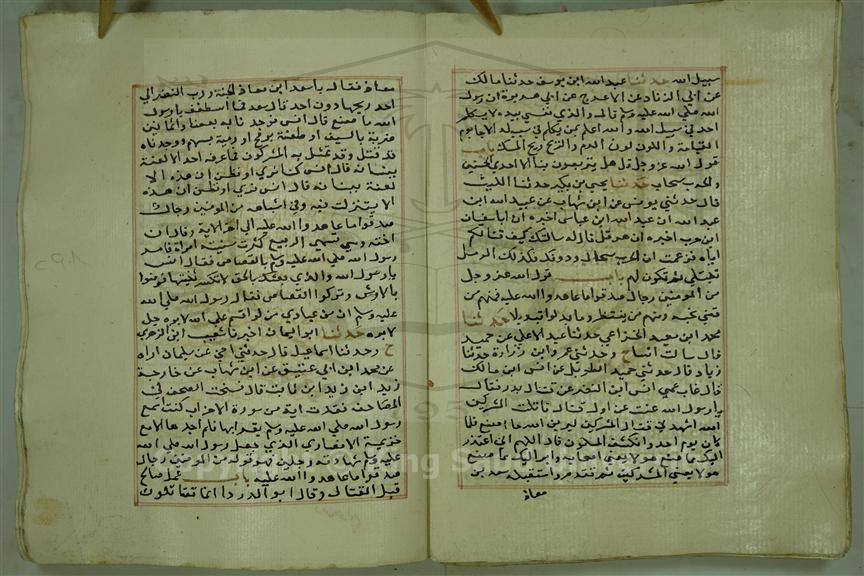 سبيل الله حدثنا عبدالله ابن يوسف حدثنا مالك
عن ابي الزناد عن الاعرج عن ابي هريرة ان رسول
الله صلي الله عليه وسلم قال والذي نفسي بيده لا يكلم
احد في سبيل الله والله اعلم بمن يكلم في سبيله الا جا يوم
القيامة واللون لون الدم والريح ريح المسك باب
قول الله عز وجل قل هل يتربصون بنا الا احدي الحسنين
والحرب سجال حدثنا يحيي بن بكير حدثنا الليث
قال حدثني يونس عن ابن شهاب عن عبيد الله ابن
عبد الله ان عبد الله ابن عباس اخبره ان ابا سفيان
ابن حرب اخبره ان هرقل قال له سالتك كيف قتالكم
اياه فزعمت ان الحرب سجال ودول فكذلك الرسل
تبتلي ثم تكون لهم باب قول الله عز وجل
من المومنين رجال صدقوا ما عاهدوا الله عليه فمنهم من
قضي نحبه ومنهم من ينتظر وما بدلوا تبديلا حدثنا
محمد ابن سعيد الخزاعي حدثنا عبد الاعلي عن حميد
قال سالت انسا ح وحدثني عمرو ابن زرارة حدثنا
زياد قال حدثني حميد الطويل عن انس ابن مالك
قال غاب عمي انس ابن النضر عن قتال بدر فقال
يا رسول الله غبت عن اول قتال قاتلت المشركين
الله اشهدني قتال المشركين ليرين الله ما اصنع فلما
كان يوم احد وانكشف المسلمون قال اللهم اني اعتذر
اليك مما صنع هولا يعني اصحابه وابرا اليك مما صنع
هولا يعني المشركين ثم تقدم واستقبله سعد بن
معاذ
معاذ فقال يا سعد ابن معاذ الجنة ورب النضر اني
اجد ريحها دون احد قال سعد فما استطعت يا رسول
الله ما صنع قال انس فوجدنا به بضعا وثمانين
ضربة بالسيف او طعنة برمح او رمية بسهم ووجدناه
قد قتل وقد تمثل به المشركون فما عرفه احد الا اخته
ببنانه قال انس كنا نري او نظن ان هذه الا
ببنانه قال انس نري او نظن ان هذه
الاية نزلت فيه وفي اشباهه من المومنين رجال
صدقوا ما عاهدوا الله عليه الي اخر الاية وقال ان
اخته وهي تسمي الربيع كسرت ثنية امراة فامر
رسول الله صلي الله عليه وسلم بالقصاص فقال انس
يا رسول الله والذي بعثك بالحق لا تكسر ثنيتها فرضوا
بالارش وتركوا القصاص فقال رسول الله صلي الله
عليه وسلم ان من عباد من لو اقسم علي الله لابره
لابره حدثنا ابو اليمان اخبرنا شعيب عن الزهري
ح وحدثنا اسماعيل قال حدثني اخي عن سليمان اراه
عن محمد ابن ابي عتيق عن ابن شهاب عن خارجة
زيد ابن زيد ابن ثابت قال نسخت الصحف في
المصاحف ففقدت اية من سورة الاحزاب كنت اسمع
رسول الله صلي الله عليه وسلم يقرا بها فلم اجدها الا مع
خزيمة الانصاري الذي جعل رسول الله صلي الله
عليه وسلم شهادته رجلين وهو قوله من المومنين رجال
صدقوا ما عاهدوا الله عليه باب عمل صالح
قبل القتال وقال ابو الدردا انما تقاتلون